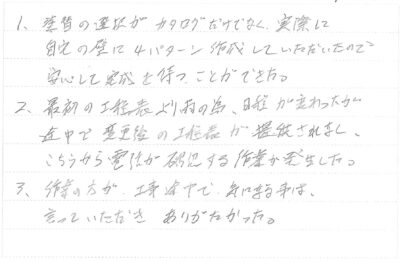 1、塗質の選択が カタログだけでなく、実際に
自宅の壁に 4パターン 作成していただいたので
安心して完成を待つことができた。
2、最初の工程表より雨の為、日程が変わったが
途中で変更後の工程表が提供されなく、
こちらから電話が確認する作業が発生した。
3、作業の方が、工事途中で、気になる事は、
言っていただき ありがたかった。